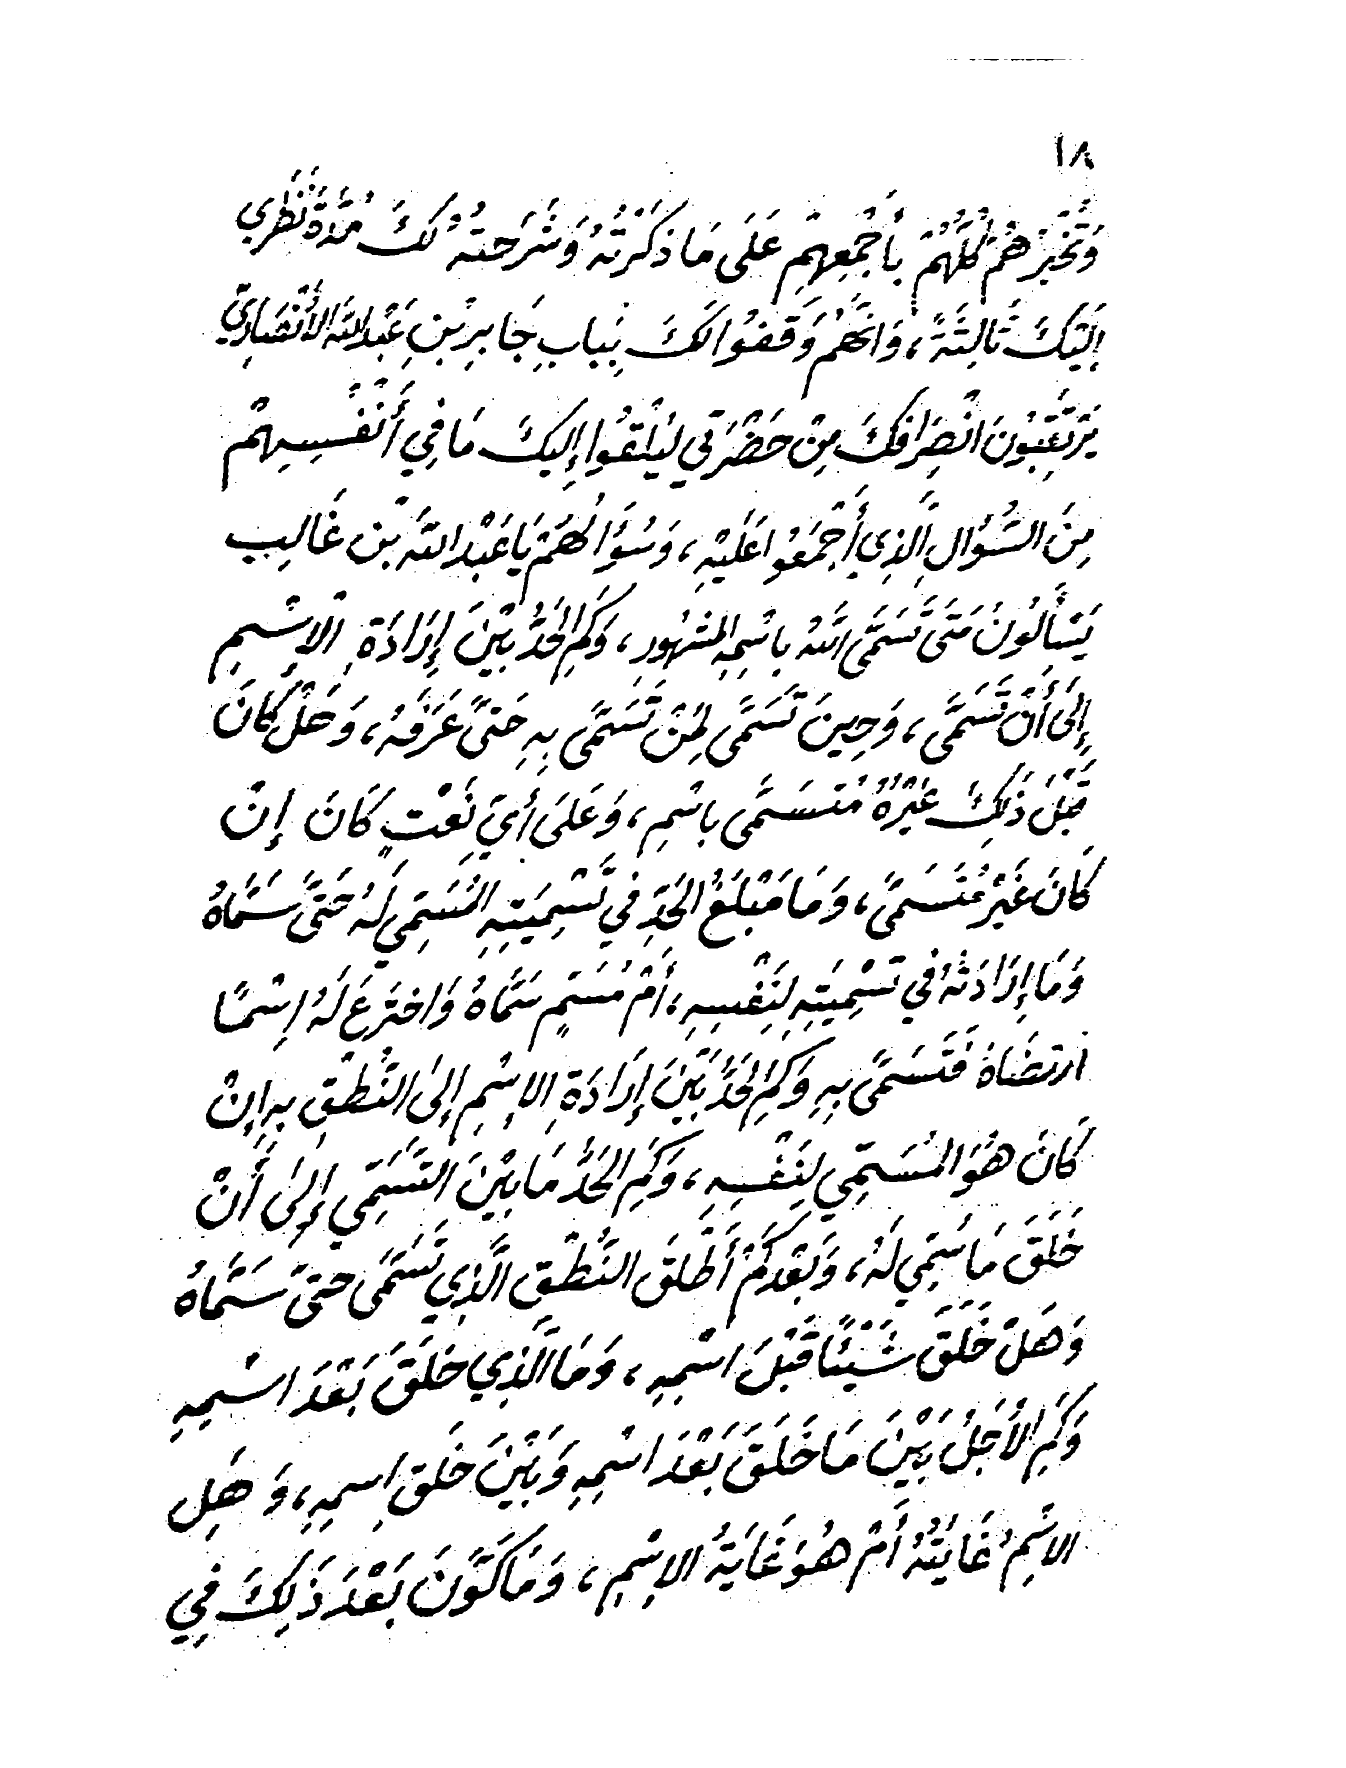 ١٨
وَتُخْبِرْهُمْ كُلَّهُمْ بِأَجْمَعِهِمْ عَلَى مَا ذَكَرْتُهُ وَشَرَحتُهُ لَكَ مُدَّةَ نَظَرِي
إِلَيْكَ ثَالِثَةً، وَانَّهُمْ وَقَفُوا لَكَ بِبَابِ جَابِرِ بْنِ عَبْدِ اللَّهِ الأَنْصَارِيِّ
يَرْتَقِبُونَ انْصِرَافَكَ مِنْ حَضْرَتِي لِيُلْقُوا إِلَيْكَ مَا فِي أَنْفُسِهِمْ
مِنَ السُّؤَالِ الَّذِي أَجْمَعُوا عَلَيْهِ، وَسُؤَالُهُمْ يَا عَبْدَ اللَّه بْن غَالِب
يَسْأَلُونَ مَتَى تَسَمَّى اللَّهُ بِاسْمِهِ المَشْهُورِ، وَكَمِ الحَدُّ بَيْنَ إِرَادَةِ الْإِسْمِ
إِلَى أَنْ تَسَمَّى، وَحِينَ تَسَمَّى لِمَنْ تَسَمَّى بِهِ حَتَّى عَرَفَهُ، وَهَلْ كَانَ
قَبْلَ ذَلِكَ غَيْرُهُ مُتَسَمَّى بِاسْمٍ، وَعَلَى أَيِّ نَعْتٍ كَانَ إِنْ
كَانَ غَيْرَ مُتَسَمَّى، وَمَا مَبْلَغُ الحَدِّ فِي تَسْمِيَتِهِ المُسَمِّي لَهُ حَتَّى سَمَّاهُ
وَمَا إِرَادَتُهُ فِي تَسْمِيَتِهِ لِنَفْسِهِ، أَمْ مُسَمٍّ سَمَّاهُ وَاخْتَرَعَ لَهُ إِسْمًا
ارتضَاهُ فَتَسَمَّى بِهِ وَكَمِ الحَدُّ بَيْنَ إِرَادَةِ الإِسْمِ إِلَى النُّطْقِ بِهِ إِنْ
كَانَ هُوَ المُسَمِّي لِنَفْسِهِ، وَكَمِ الحَدُّ مَا بَيْنَ التَّسَمِّي إِلَى أَنْ
خَلَقَ مَا سُمِّي لَهُ، وَبَعْدَ كَمْ أَطْلَقَ النُّطْقِ الَّذِي تَسَمَّى حَتَّى سَمَّاهُ
وَهَلْ خَلَقَ شَيْئًا قَبْلَ اسْمِهِ، وَمَا الَّذِي خَلَقَ بَعْدَ اسْمِهِ
وَكَمِ الأَجَلُ بَيْنَ مَا خَلَقَ بَعْدَ اسْمِهِ وَبَيْنَ خَلقِ إِسمِهِ، وَهَلِ
الاسْمُ غَايَتُهُ أَمْ هُوَ غَايَةُ الإِسْمِ، وَمَا كَوَّنَ بَعْدَ ذَلِكَ فِي